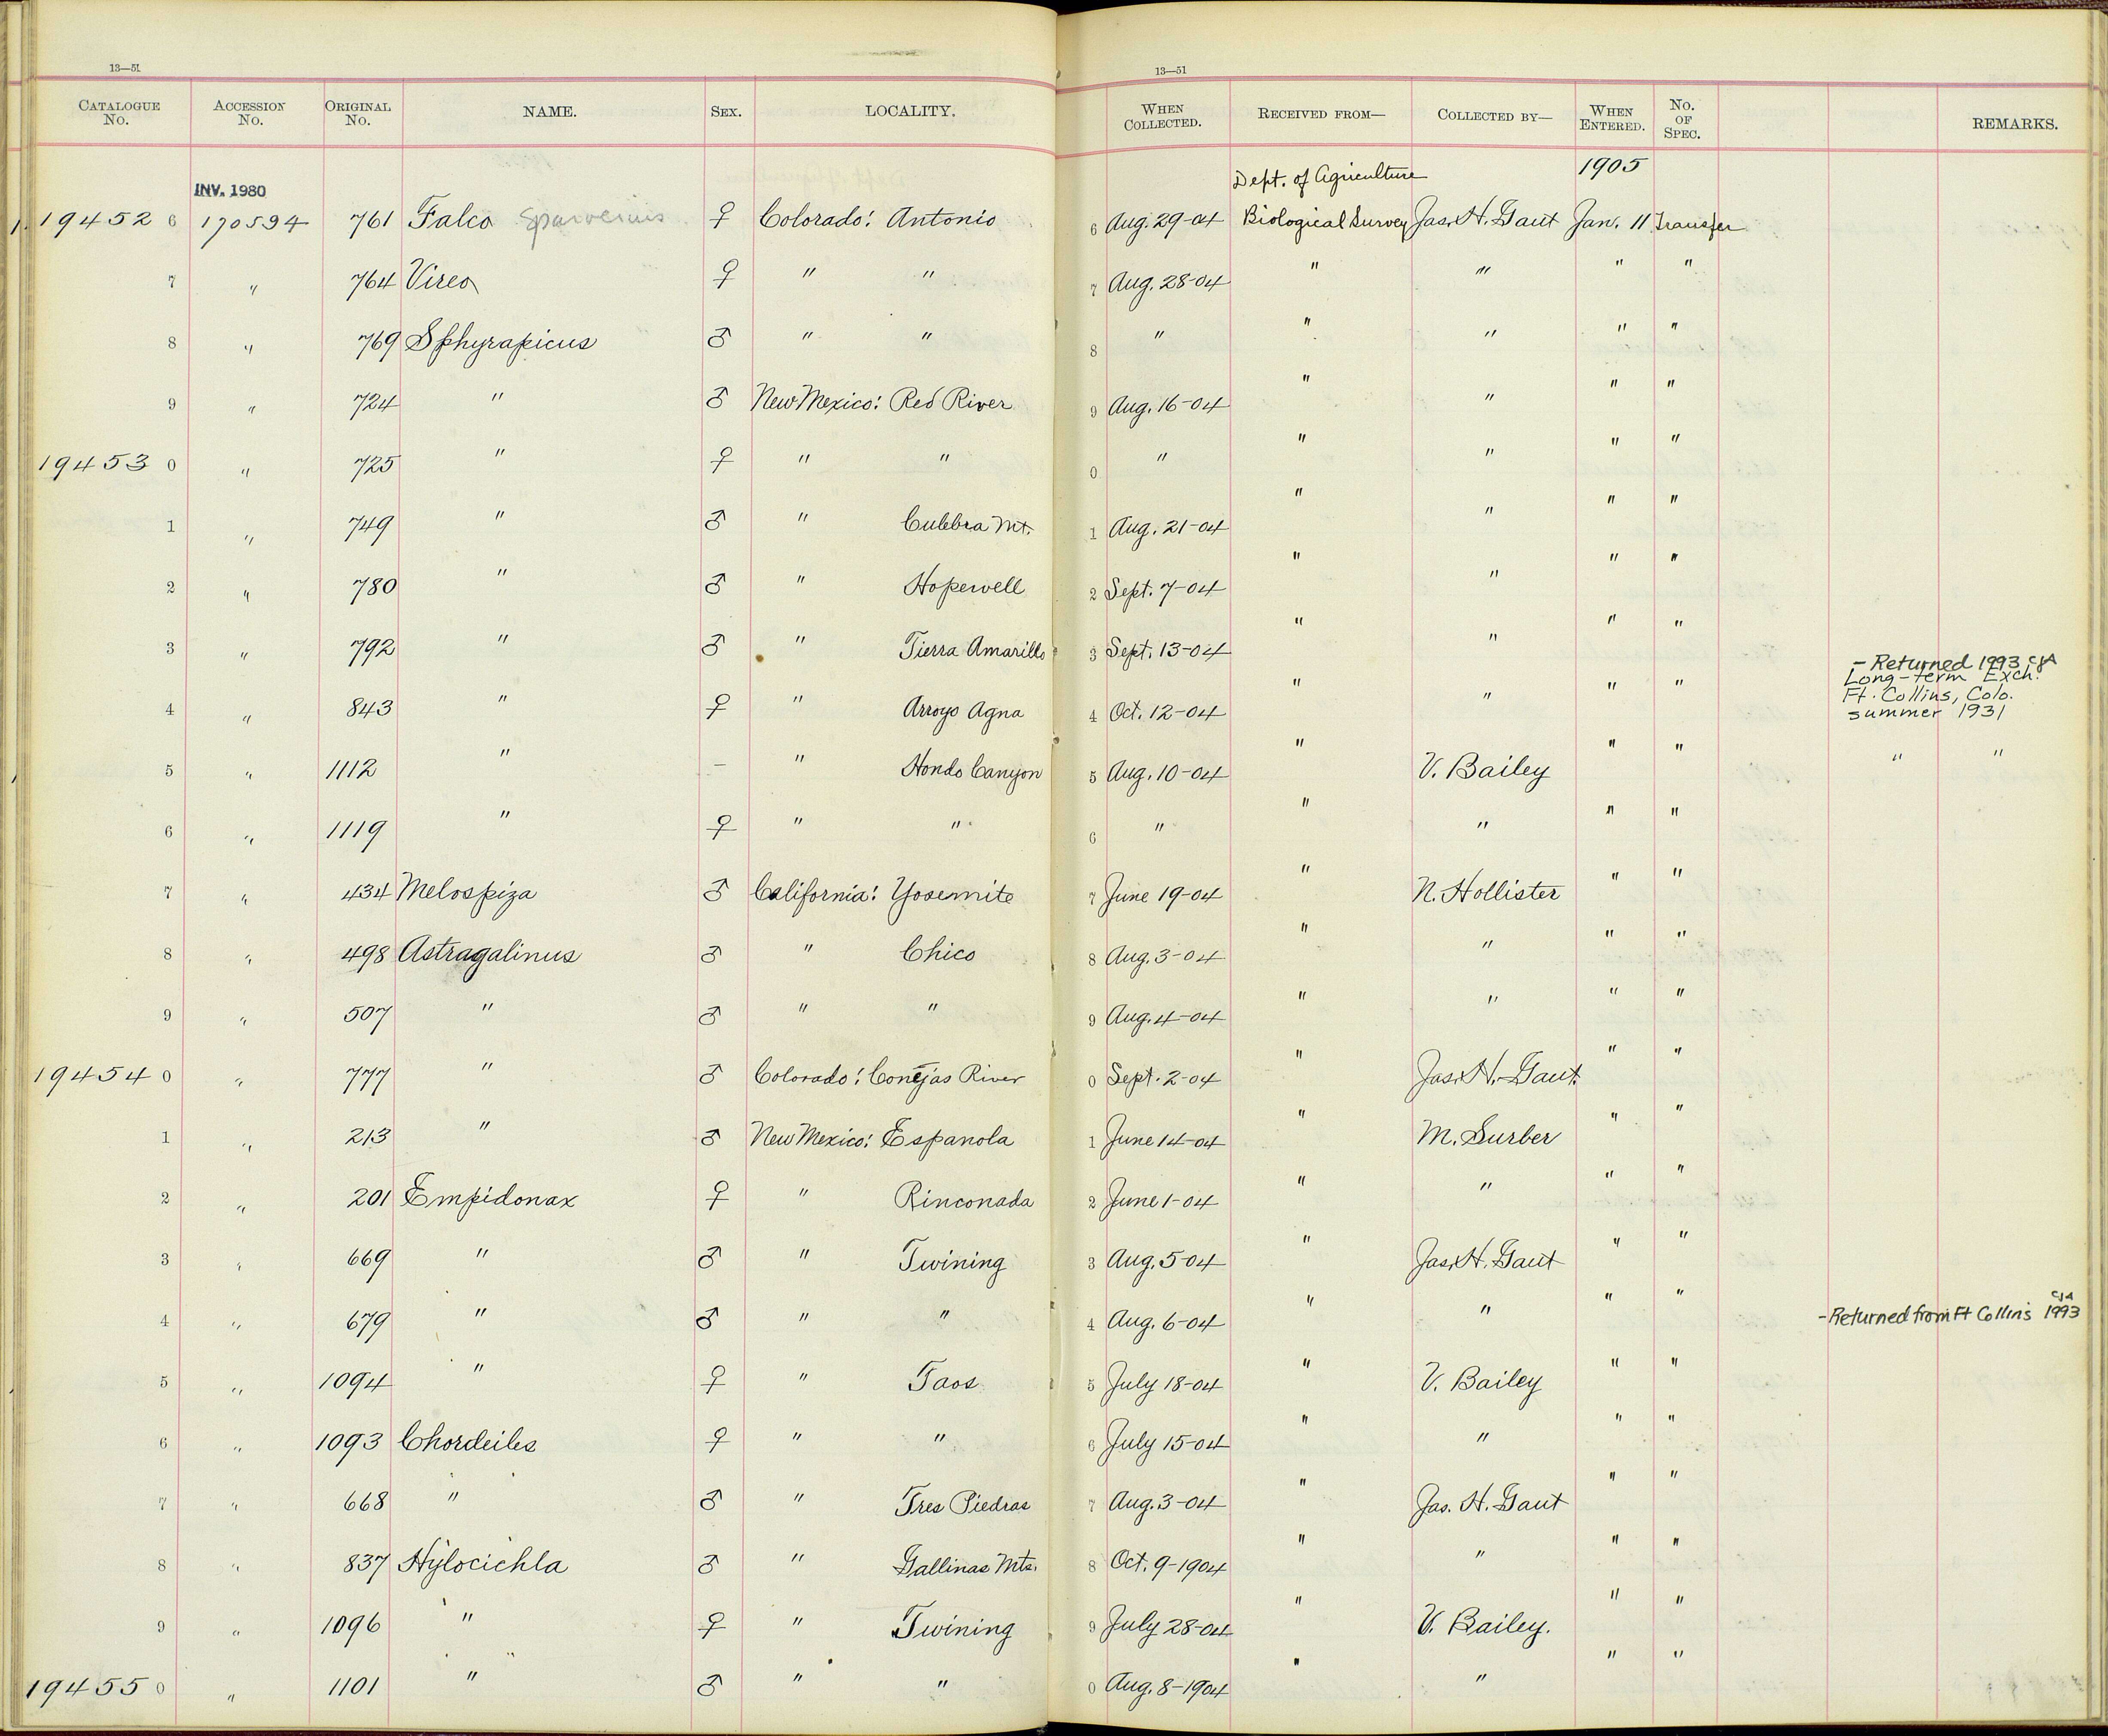 13—51
13—51
CATALOGUE No. ACCESSION No. ORIGINAL No. NAME. SEX. LOCALITY. WHEN COLLECTED. RECEIVED FROM— COLLECTED BY— WHEN ENTERED. No. OF SPEC. REMARKS.
Dept. of Agriculture 1905
INV. 1980
19452 6 170594 761 Falco Sparverius ♀ Colorado: Antonio 6 Aug. 29-04 Biological Survey Jas. H. Gaut Jan. 11 Transfer
7 " 764 Vireo ♀ " " 7 Aug. 28-04 " " " "
8 " 769 Sphyrapicus ♂ " " 8 " " " " "
9 " 724 " ♂ New Mexico: Red River 9 Aug. 16-04 " " " "
19453 0 " 725 " ♀ " " 0 " " " " "
1 " 749 " ♂ " Culebra Mt. 1 Aug. 21-04 " " " "
2 " 780 " ♂ " Hopewell 2 Sept. 7-04 " " " "
3 " 792 " ♂ " Tierra Amarillo 3 Sept. 13-04 " " " "
- Returned 1993 CJA
Long-term Exch.
Ft. Collins, Colo.
summer 1931
4 " 843 " ♀ " Arroyo Agna 4 Oct. 12-04 " " " "
5 " 1112 " – " Hondo Canyon 5 Aug. 10-04 " V. Bailey " " " "
6 " 1119 " ♀ " " 6 " " " " "
7 " 434 Melospiza ♂ California: Yosemite 7 June 19-04 " N. Hollister " "
8 " 498 Astragalinus ♂ " Chico 8 Aug. 3-04 " " " "
9 " 507 " ♂ " " 9 Aug. 4-04 " " " "
19454 0 " 777 " ♂ Colorado: Conejas River 0 Sept. 2-04 " Jas. H. Gaut " "
1 " 213 " ♂ New Mexico: Espanola 1 June 14-04 " M. Surber " "
2 " 201 Empidonax ♀ " Rinconada 2 June 1-04 " " " "
3 " 669 " ♂ " Twining 3 Aug. 5-04 " Jas. H. Gaut " "
4 " 679 " ♂ " " 4 Aug. 6-04 " " " " - Returned from Ft Collins 1993 CJA
5 " 1094 " ♀ " Taos 5 July 18-04 " V. Bailey " "
6 " 1093 Chordeiles ♀ " " 6 July 15-04 " " " "
7 " 668 " ♂ " Tres Piedras 7 Aug. 3-04 " Jas. H. Gaut " "
8 " 837 Hylocichla ♂ " Gallinas Mts. 8 Oct. 9-1904 " " " "
9 " 1096 " ♀ " Twining 9 July 28-04 " V. Bailey. " "
19455 0 " 1101 " ♂ " " 0 Aug. 8-1904 " " " "